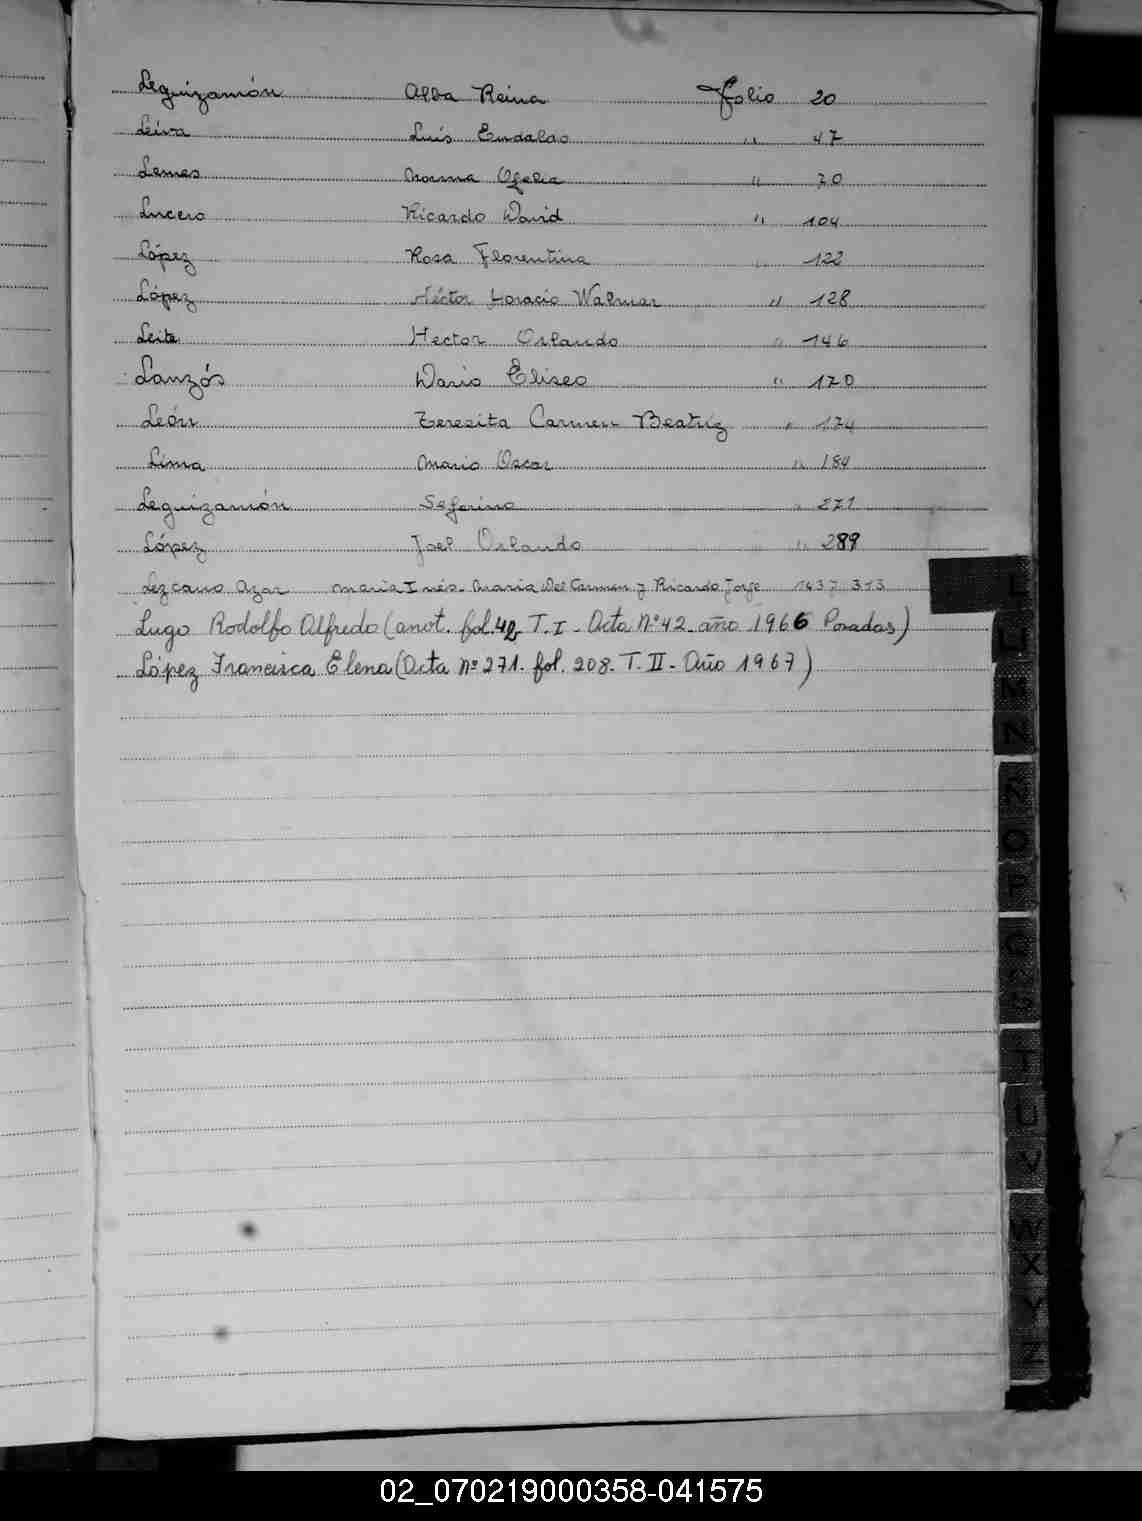 Leguizamón Alba Reina folio 20
Leiva Luis Eudalao " 47
Lemes Norma Ofelia " 70
Lucero Ricardo David " 104
López Rosa Florentina " 122
López Héctor Horacio Walmar " 128
Leite Hector Orlando " 146
Lanzós Dario Eliseo " 170
León Teresita Carmen Beatríz " 174
Lima Mario Oscar " 184
Leguizamón Seferino " 271
López Joel Orlando " 289
Lezcano Azar María Inés. María Del Carmen y Ricardo Jorge 313
Lugo Rodolfo Alfredo (anot. fol. T. I - Acta Nº 42. año 1966 Posadas)
López Francisca Elena (Acta nº 271. fol. 208. T. II - Año 1967)
L
LL
M
N
Ñ
O
P
Q
T
U
V
W
X
Y
Z
02_070219000358-041575